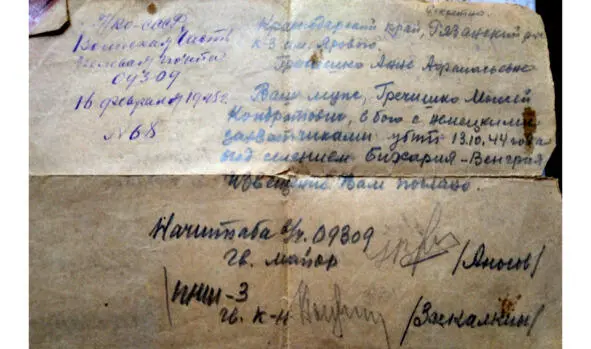 НКО-СССР
Воинская часть
полевая почта
09309
16 февраля 1945 г.
№ 68
Секретно.
Краснодарский край, Рязанский р-н
к-з им. Ярового.
Гречишко Анне Афанасьевне
Ваш муж, Гречишко Моисей
Кондратович, в бою с немецкими
захватчиками убит 13.10.44 года
под селением Бихария-Венгрия
Извещение Вам послано.
Начштаба в/ч. 09309
гв. майор /Аносов/
/ПНШ-3
гв. к-н /Заскалкин/